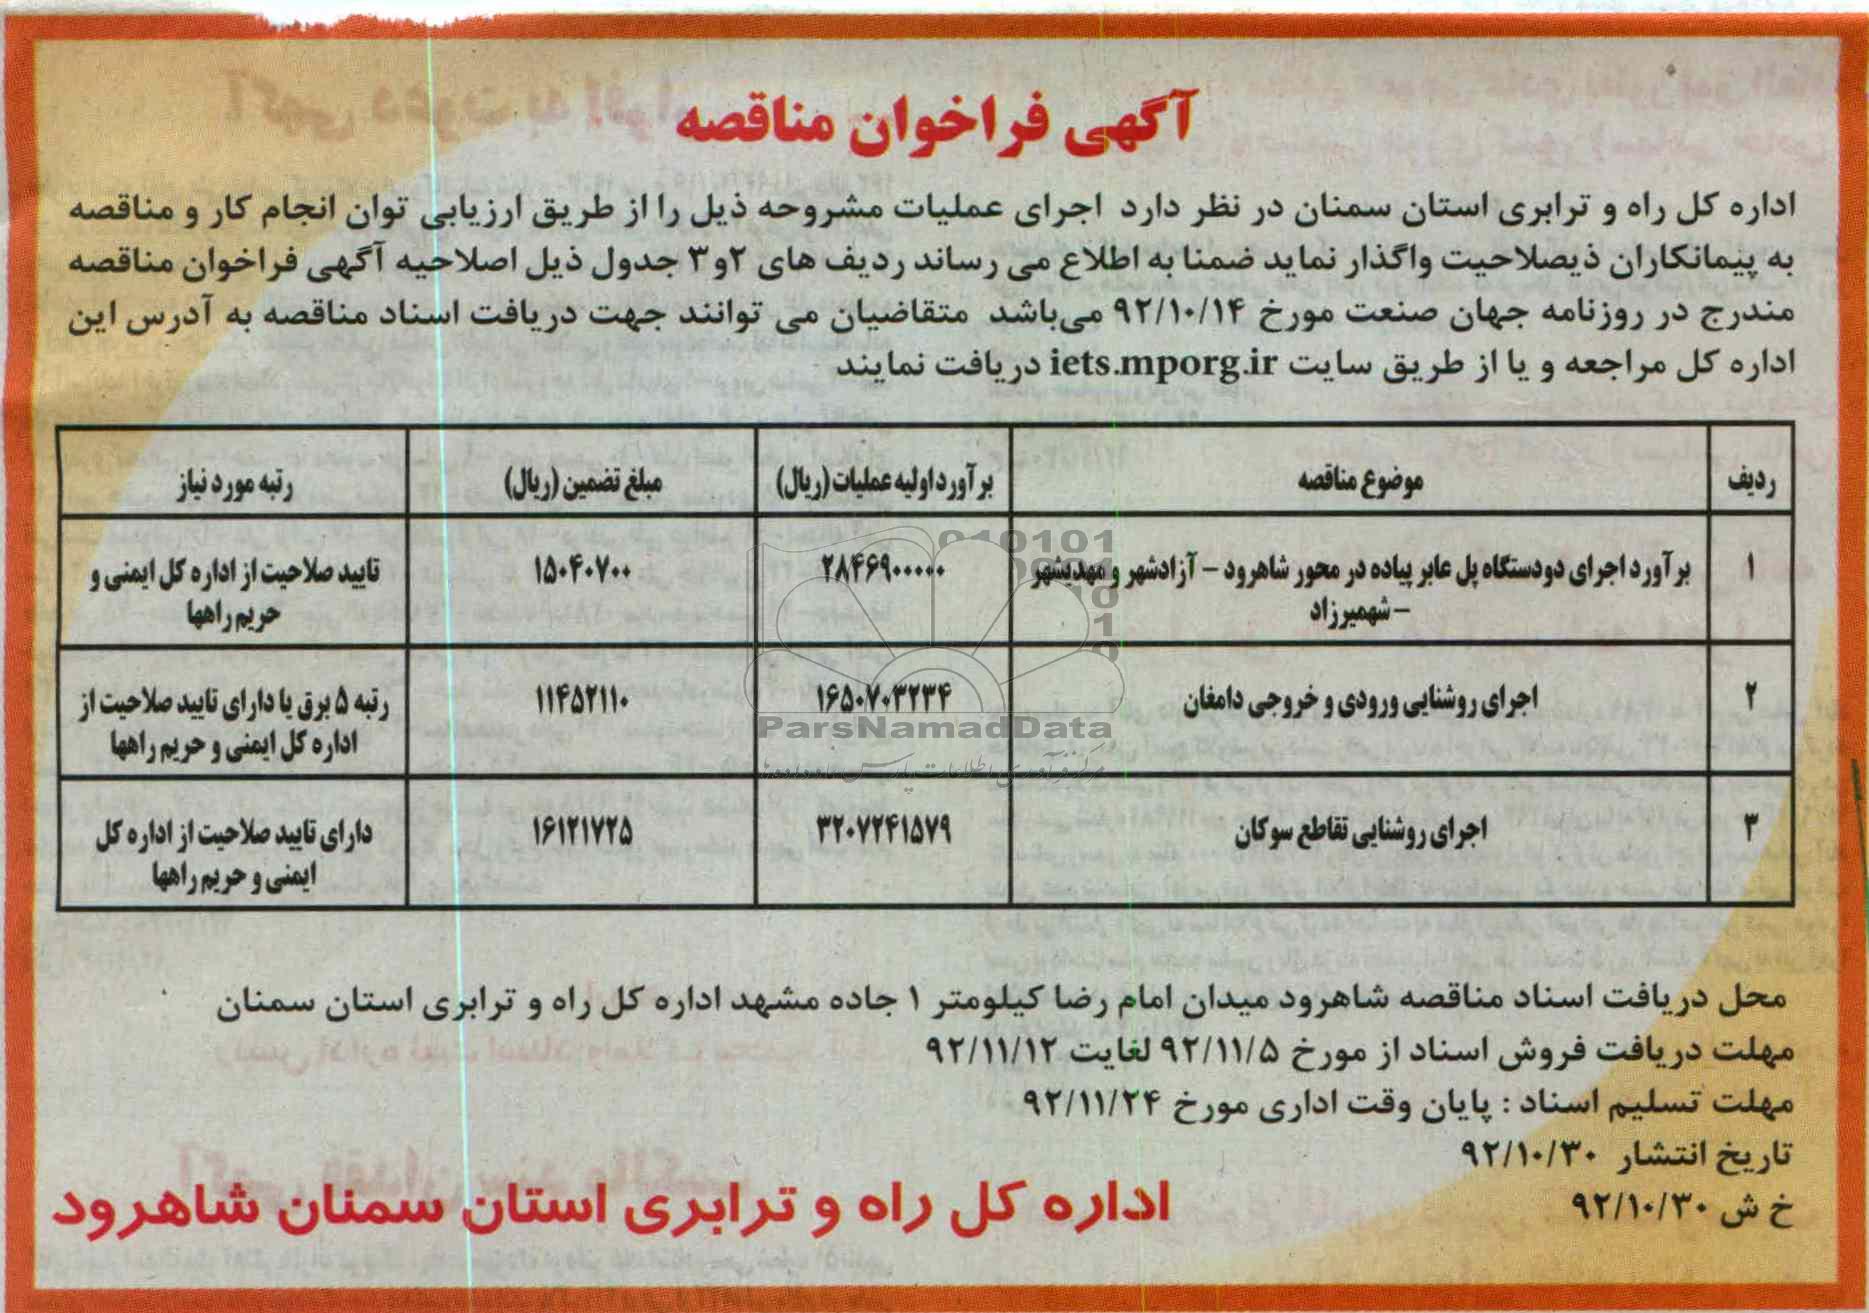 آگهی فراخوان مناقصه
اداره کل راه و ترابری استان سمنان در نظر دارد اجرای عملیات مشروحه ذیل را از طریق ارزیابی توان انجام کار و مناقصه
به پیمانکاران ذیصلاحیت واگذار نماید ضمنا به اطلاع می رساند ردیف های ۲و۳ جدول ذیل اصلاحیه آگهی فراخوان مناقصه
مندرج در روزنامه جهان صنعت مورخ ۹۲/۱۰/۱۴ می‌باشد متقاضیان می توانند جهت دریافت اسناد مناقصه به آدرس این
اداره کل مراجعه و یا از طریق سایت iets.mporg.ir دریافت نمایند
ردیف	موضوع مناقصه	برآورد اولیه عملیات (ریال)	مبلغ تضمین (ریال)	رتبه مورد نیاز
۱	برآورد اجرای دودستگاه پل عابر پیاده در محور شاهرود – آزادشهر و مهدیشهر	۲۸۴۶۹۰۰۰۰۰	۱۵۰۴۰۷۰۰	تایید صلاحیت از اداره کل ایمنی و
– شهمیرزاد	حریم راهها
۲	اجرای روشنایی ورودی و خروجی دامغان	۱۶۵۰۷۰۳۲۳۴	۱۱۴۵۲۱۱۰	رتبه ۵ برق یا دارای تایید صلاحیت از
اداره کل ایمنی و حریم راهها
۳	اجرای روشنایی تقاطع سوکان	۳۲۰۷۲۴۱۵۷۹	۱۶۱۲۱۷۲۵	دارای تایید صلاحیت از اداره کل
ایمنی و حریم راهها
ParsNamadData
محل دریافت اسناد مناقصه شاهرود میدان امام رضا کیلومتر ۱ جاده مشهد اداره کل راه و ترابری استان سمنان
مهلت دریافت فروش اسناد از مورخ ۹۲/۱۱/۵ لغایت ۹۲/۱۱/۱۲
مهلت تسلیم اسناد : پایان وقت اداری مورخ ۹۲/۱۱/۲۴
تاریخ انتشار ۹۲/۱۰/۳۰
خ ش ۹۲/۱۰/۳۰
اداره کل راه و ترابری استان سمنان شاهرود